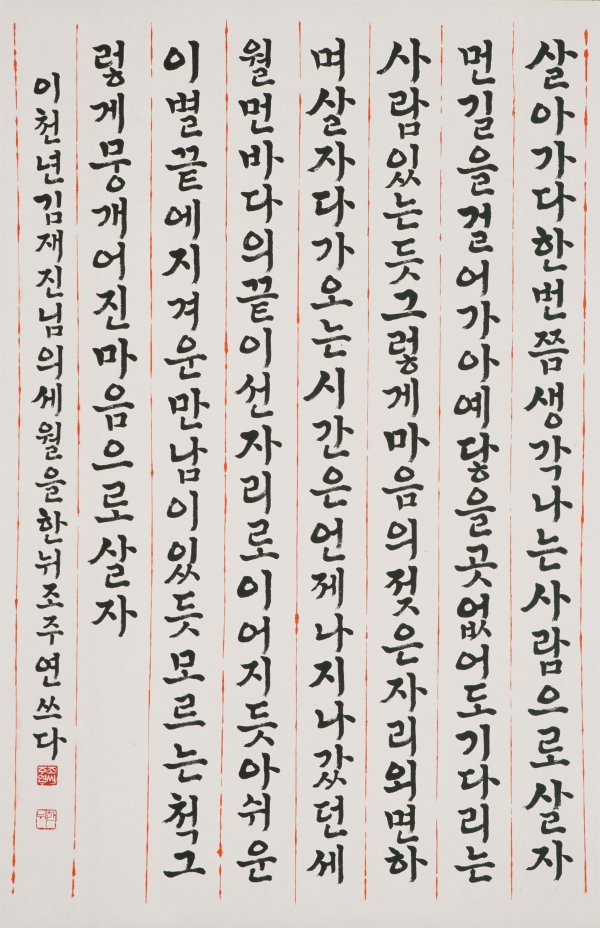 살아가다한번쯤생각나는사람으로살자
먼길을걸어가아예닿을곳없어도기다리는
사람있는듯그렇게마음의젖은자리외면하
며살자다가오는시간은언제나지나갔던세
월먼바다의끝이선자리로이어지듯아쉬운
이별끝에지겨운만남이있듯모르는척그
렇게뭉개어진마음으로살자
이천년김재진님의세월을한뉘조주연쓰다
조씨주연